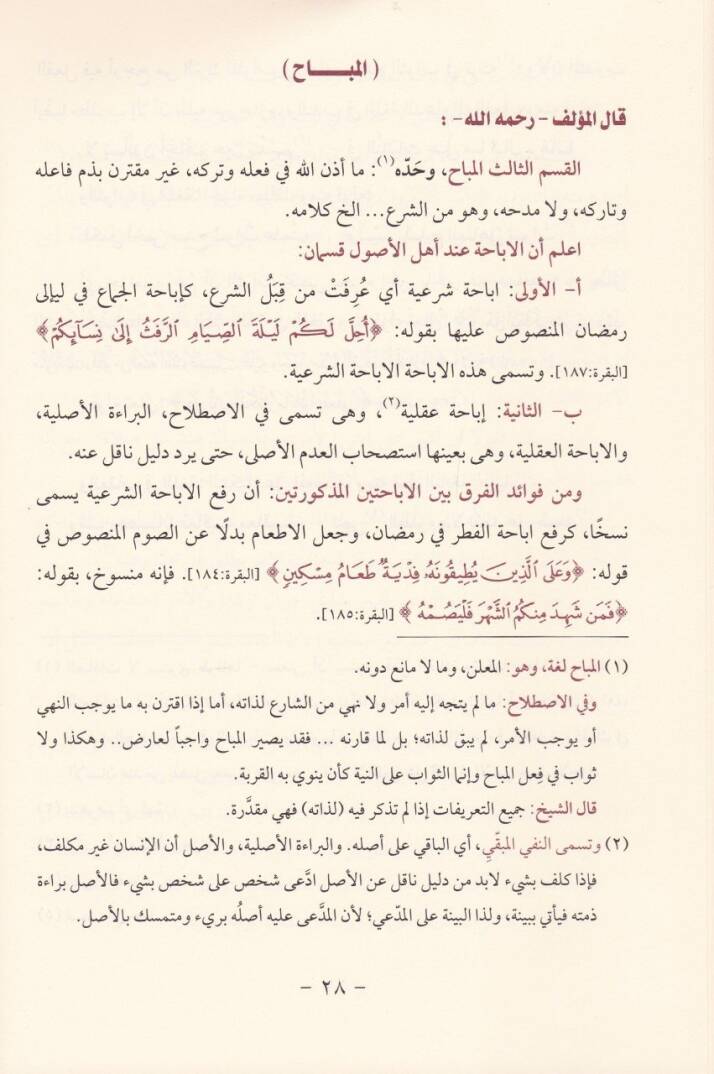 (المبـــاح)
قال المؤلف - رحمه الله - :
القسم الثالث المباح، وحَدّه(١): ما أذن الله في فعله وتركه، غير مقترن بذم فاعله
وتاركه، ولا مدحه، وهو من الشرع... الخ كلامه.
اعلم أن الاباحة عند أهل الأصول قسمان:
أ- الأولى: اباحة شرعية أي عُرِفَتْ من قِبَلُ الشرع، كإباحة الجماع في ليإلى
رمضان المنصوص عليها بقوله: ﴿أُحِلَّ لَكُمْ لَيْلَةَ الصِّيَامِ الرَّفَثُ إِلَىٰ نِسَائِكُمْ﴾
[البقرة:١٨٧]. وتسمى هذه الاباحة الاباحة الشرعية.
ب- الثانية: إباحة عقلية(٢)، وهى تسمى في الاصطلاح، البراءة الأصلية،
والاباحة العقلية، وهى بعينها استصحاب العدم الأصلى، حتى يرد دليل ناقل عنه.
ومن فوائد الفرق بين الاباحتين المذكورتين: أن رفع الاباحة الشرعية يسمى
نسخًا، كرفع اباحة الفطر في رمضان، وجعل الاطعام بدلًا عن الصوم المنصوص في
قوله: ﴿وَعَلَى الَّذِينَ يُطِيقُونَهُ فِدْيَةٌ طَعَامُ مِسْكِينٍ﴾ [البقرة:١٨٤]. فإنه منسوخ، بقوله:
﴿فَمَن شَهِدَ مِنكُمُ الشَّهْرَ فَلْيَصُمْهُ﴾ [البقرة:١٨٥].
(١) المباح لغة، وهو: المعلن، وما لا مانع دونه.
وفي الاصطلاح: ما لم يتجه إليه أمر ولا نهي من الشارع لذاته، أما إذا اقترن به ما يوجب النهي
أو يوجب الأمر، لم يبق لذاته؛ بل لما قارنه ... فقد يصير المباح واجباً لعارض.. وهكذا ولا
ثواب في فِعل المباح وإنما الثواب على النية كأن ينوي به القربة.
قال الشيخ: جميع التعريفات إذا لم تذكر فيه (لذاته) فهي مقدَّرة.
(٢) وتسمى النفي المبقّي، أي الباقي على أصله. والبراءة الأصلية، والأصل أن الإنسان غير مكلف،
فإذا كلف بشيء لابد من دليل ناقل عن الأصل ادَّعى شخص على شخص بشيء فالأصل براءة
ذمته فيأتي ببينة، ولذا البينة على المدّعي؛ لأن المدَّعى عليه أصلُه بريء ومتمسك بالأصل.
- ٢٨ -